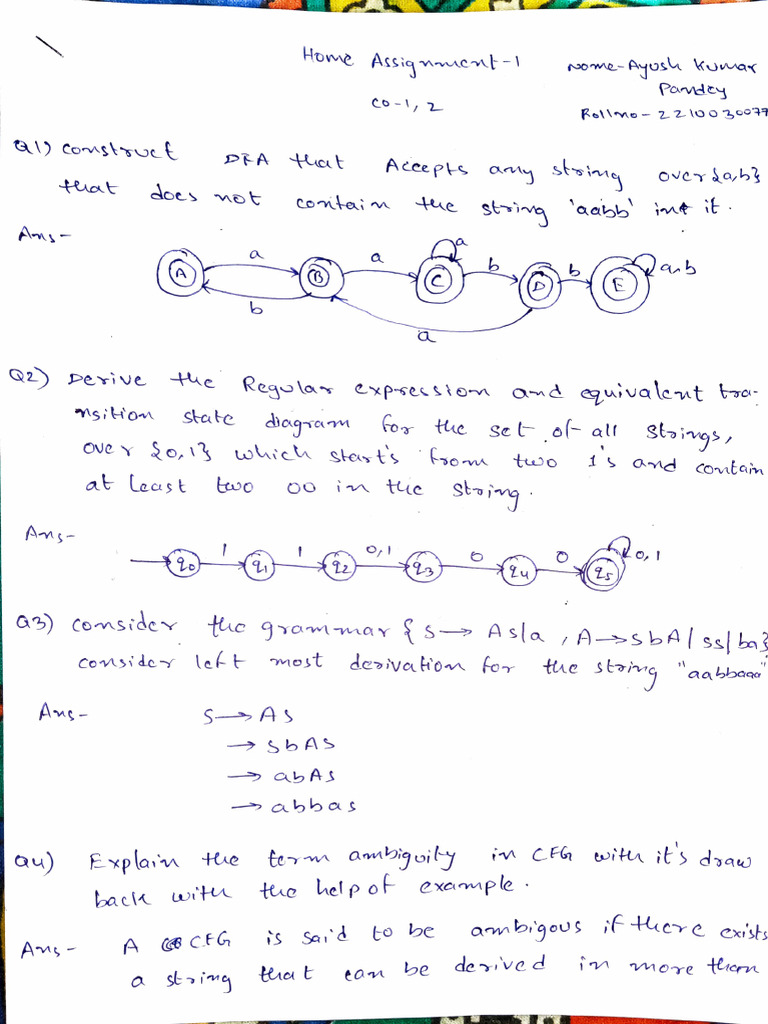 Home Assignment-1
Name-Ayush Kumar
Pandey
CO-1, 2
Rollno-2210030079
Q1) Construct DFA that Accepts any string over {a,b}
that does not contain the string 'aabb' in it.
Ans-
a
a
a
b
b
a,b
A
B
C
D
E
b
a
Q2) Derive the Regular expression and equivalent tra-
nsition state diagram for the set of all strings,
over {0,1} which start's from two 1's and contain
at least two 00 in the string.
Ans-
1
1
0,1
0
0
0,1
q0
q1
q2
q3
q4
q5
Q3) Consider the grammar {S→ AS/a , A→SbA/ SS/ba}
consider left most derivation for the string "aabbaaa"
Ans-
S→AS
→ SbAS
→ abAS
→ abbas
Q4) Explain the term ambiguity in CFG with it's draw
back with the help of example.
Ans- A CFG is said to be ambigous if there exists
a string that can be derived in more than